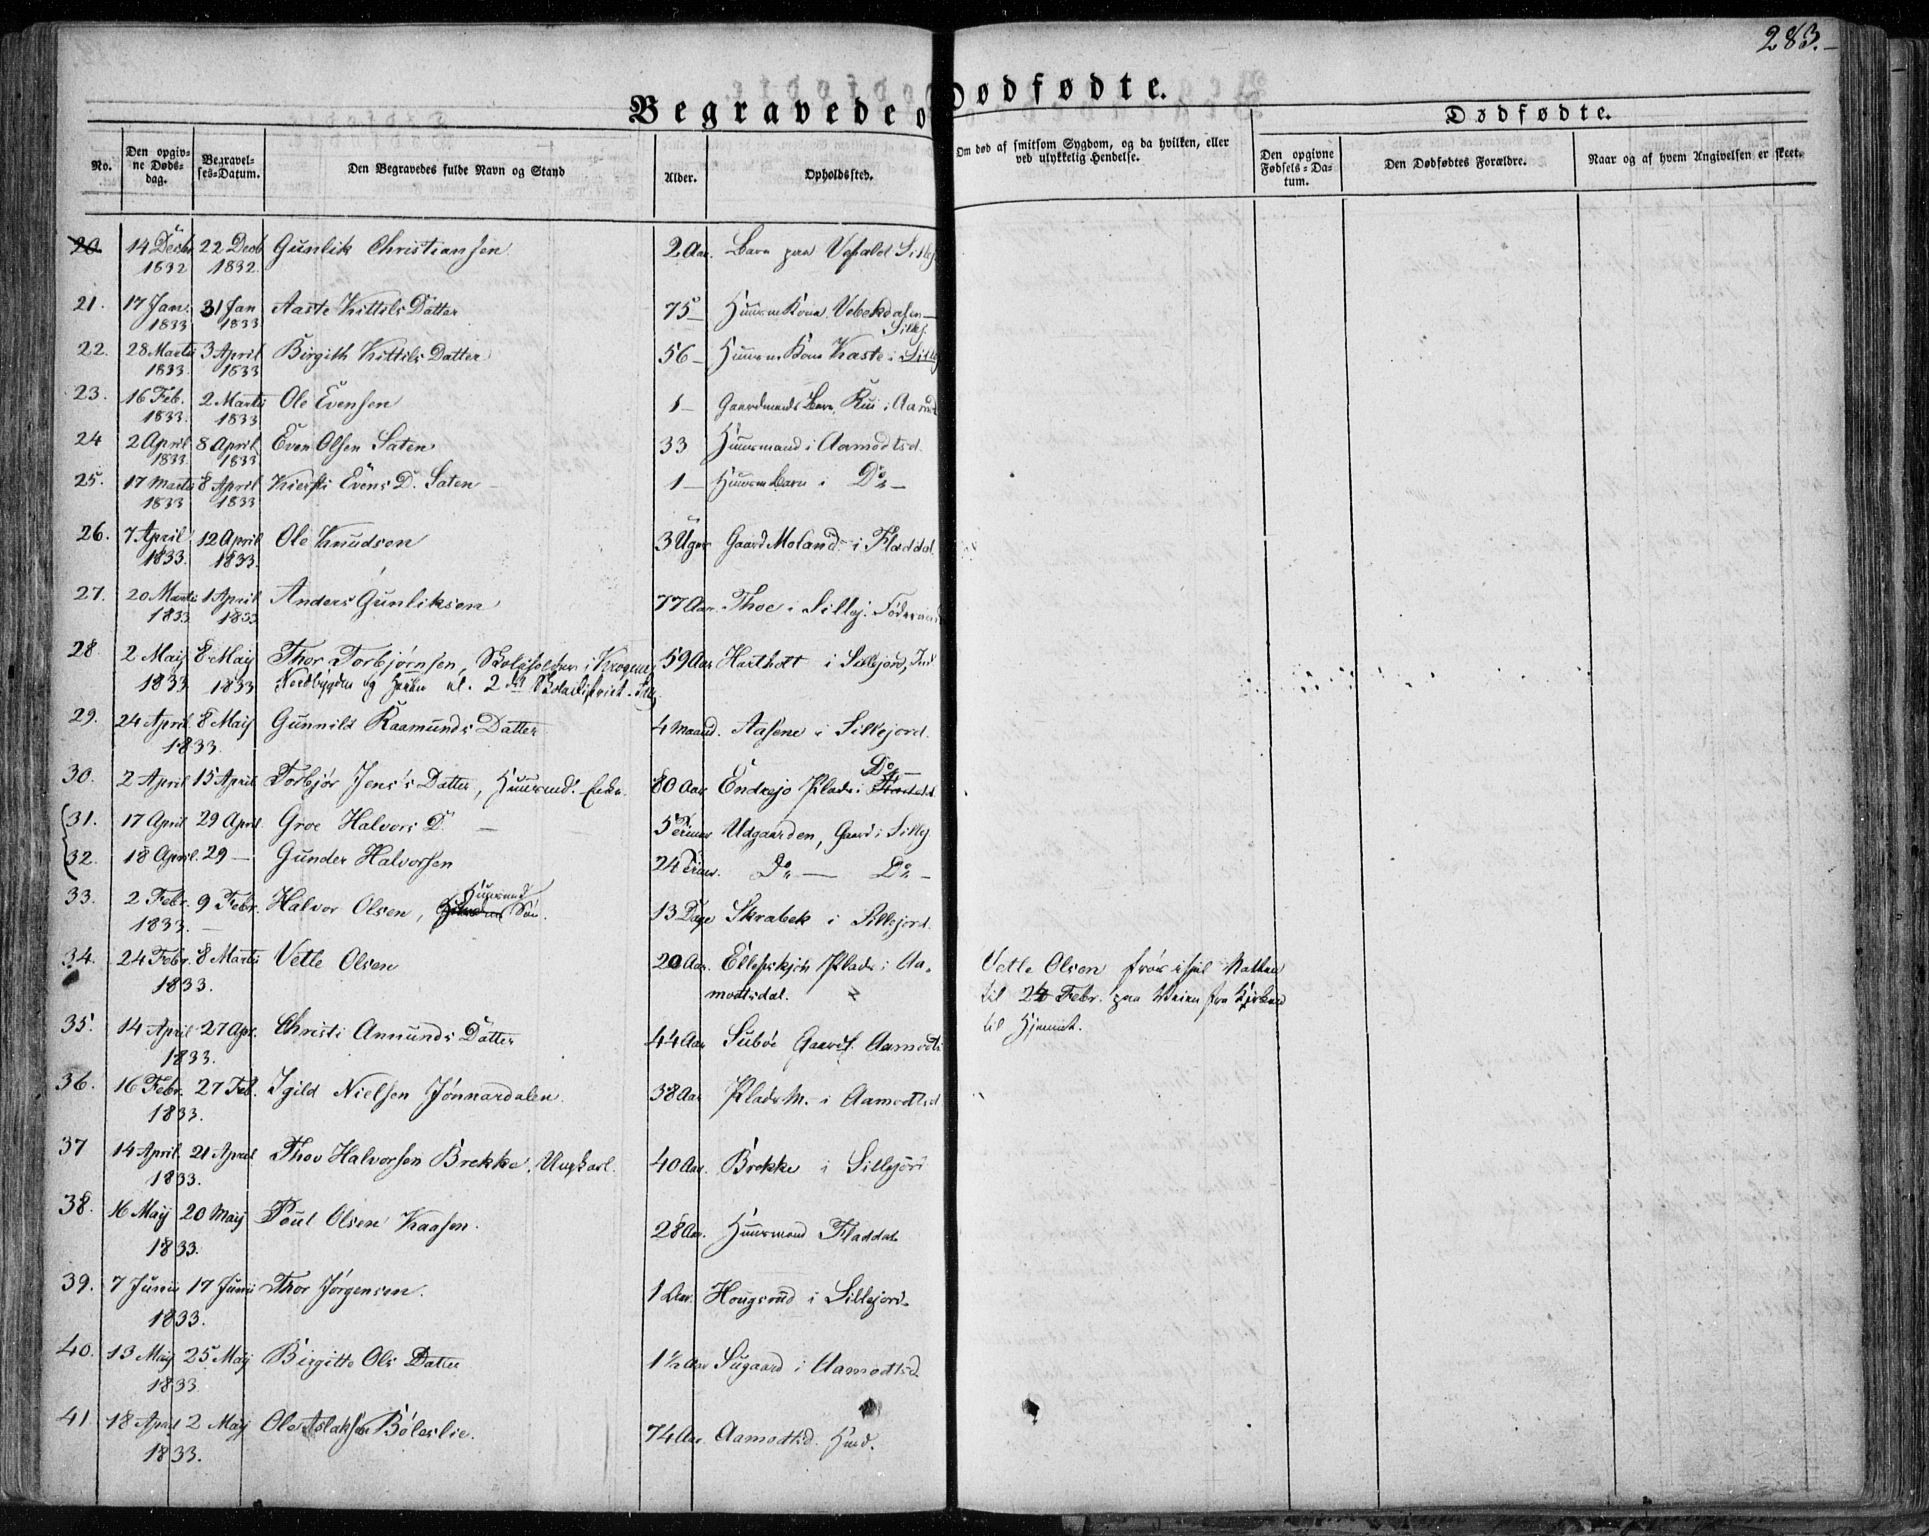 283.
Begravede o Dødfødte.
Dødfødte.
No.
Den opgiv-
ne Døds-
dag.
Begravel-
ses-Datum.
Den Begravedes fulde Navn og Stand
Alder.
Opholdssted.
Om død af smitsom Sygdom, og da hvilken, eller
ved ulykkelig Hendelse.
Den opgivne
Fødsels-Da-
tum.
Den Dødfødtes Forældre.
Naar og af hvem Angivelsen er skeet.
20 14 Decbr 22 Decb Gunlik Christiansen 2 Aar. Barn paa
1832 1832.
21. 17 Jan. 31 Jan Aaste Kittils Datter 75 Huusm Kone
1833 1833 Sillej.
22. 28 Marts 3 April Birgith Kittils Datter 56 Huusm Kone Kaste i Sillej
1833. 1833
23. 16 Feb. 2 Marts Ole Evensen 1 Gaardmands Barn i Aamot
1833. 1833
24 2 April 8 April Even Olsen Saten 33 Huusmand i Aamodtsd.
1833. 1833
25. 17 Marts 8 April Kiersti Evens D. Saten 1 Huusm Barn i Do
1833 1833
26. 7 April 12 April Ole Knudson 3 Uger Gaard Moland i Fladdal
1833. 1833.
27. 20 Marts 1 April Anders Gunlikson 77 Aar. Thoe i Sillej.
1833 1833
28. 2 Maij 8 Maij Thor Torbjørnsen, Skoleholder i 59 Aar i Sillejord,
1833 1833 2det Skoledistrict
29. 24 April 8 Maij Gunnild Raamunds Datter 4 Maaned. Aasene i Sillejord.
1833.
30. 2 April 15 April Torbjør Jens's Datter, Huusmd. Enke. 80 Aar Endrejo Plads i Do
31. 17 April 29 April Groe Halvors D. 5 Timer Udgaarden, Gaard i Sillej
32. 18 April. 29 — Gunder Halvorsen 24 Timer. Do — Do —
33. 2 Febr. 9 Febr. Halvor Olsen, Huusmd Søn. 13 Dage Skrabek i Sillejord.
1833.
34. 24 Febr. 8 Marts Vetle Olsen 20 Aar. Plads i Aa-
1833. modtsdal.
Vetle Olsen frös ihjel Natten
til 24 Febr. paa Veien fra Kirken
til Hjemmet.
35. 14 April 27 Apr. Christi Amunds Datter 44 Aar Subøe Gaard. Aamodts
1833.
36. 16 Febr. 27 Feb. Igild Nielsen Jønnardalen 38 Aar Plads M. i Aamodtsd
1833.
37 14 April. 21 April Thov Halvorsen Brekke, Ungkarl. 40 Aar. Brekke i Sillejord
1833.
38. 16 Maij 20 Maij Poul Olsen Kaasen. 28 Aar. Huusmand Fladdal
1833.
39. 7 Junii 17 Junii Thor Jørgensen. 1 Aar. Hougsrud i Sillejord.
1833.
40. 13 Maij 25 Maij Birgitte Ols Datter 1½ Aar Sugaard i Aamodtsd.
1833
41. 18 April 2 Maij Ole Aslaksen Böleslie. 74 Aar. Aamodtsd. Hmd.
1833.